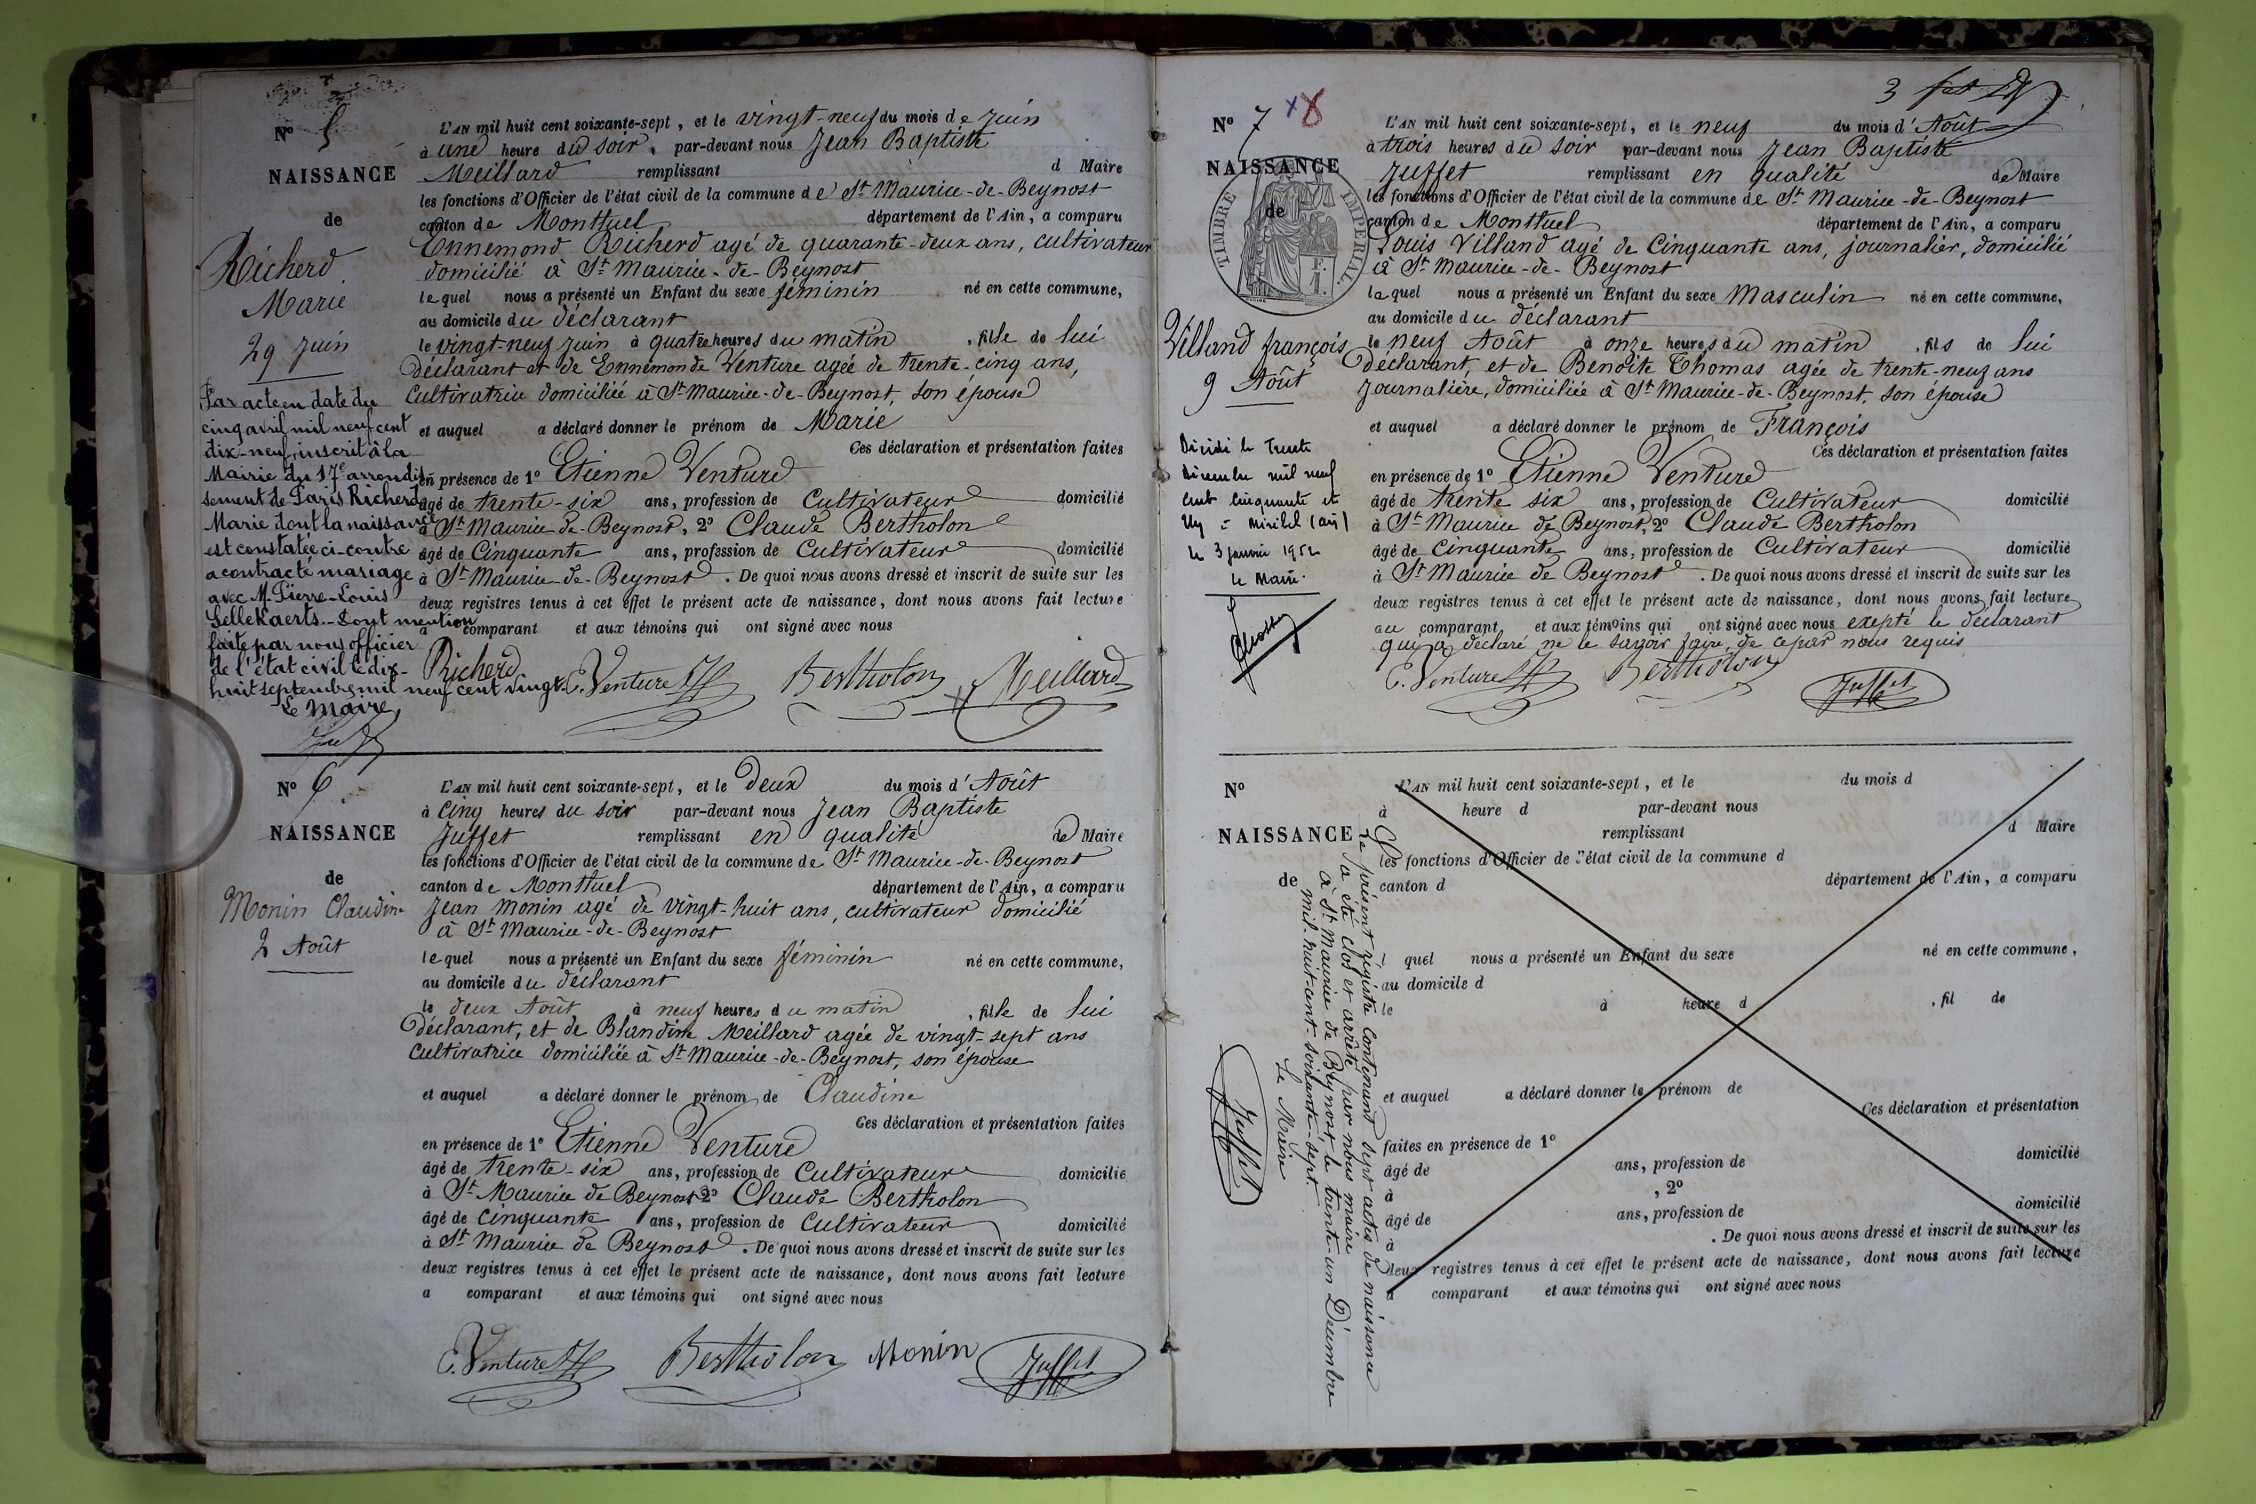 Nº 5
NAISSANCE
de
Richerd
Marie
29 Juin
Par acte en date du
cinq avril mil neuf cent
dix-neuf, inscrit à la
Mairie du 17e arrondis
sement de Paris Richerd
Marie dont la naissance
est constatée ci-contre
a contracté mariage
avec M. Pierre-Louis
Sellekaerts.- Dont mention
faite par nous officier
de l'état civil le dix-
huit septembre mil neuf cent vingt.
Le Maire,
L'AN mil huit cent soixante-sept, et le vingt-neuf du mois de Juin
à une heure du soir, par-devant nous Jean Baptiste
Meillard remplissant d Maire
les fonctions d'Officier de l'état civil de la commune de St Maurice-de-Beynost
canton de Montluel département de l'Ain, a comparu
Ennemond Richerd agé de quarante-deux ans, cultivateur
domicilié à St Maurice-de-Beynost
lequel nous a présenté un Enfant du sexe féminin né en cette commune,
au domicile du déclarant
le vingt-neuf Juin à quatre heures du matin, fille de lui
déclarant et de Ennemonde Venture agée de trente-cinq ans,
Cultivatrice domiciliée à St Maurice-de-Beynost, son épouse
et auquel a déclaré donner le prénom de Marie
Ces déclaration et présentation faites
en présence de 1º Etienne Venture
âgé de trente-six ans, profession de Cultivateur domicilié
à St Maurice-de-Beynost, 2º Claude Bertholon
âgé de Cinquante ans, profession de Cultivateur domicilié
à St Maurice-de-Beynost. De quoi nous avons dressé et inscrit de suite sur les
deux registres tenus à cet effet le présent acte de naissance, dont nous avons fait lecture
a comparant et aux témoins qui ont signé avec nous
Richerd E. Venture Bertholon Meillard
Nº 6
NAISSANCE
de
Monin Claudine
2 Août
L'AN mil huit cent soixante-sept, et le Deux du mois d'Août
à Cinq heures du soir par-devant nous Jean Baptiste
Juffet remplissant en qualité de Maire
les fonctions d'Officier de l'état civil de la commune de St Maurice-de-Beynost
canton de Montluel département de l'Ain, a comparu
Jean Monin agé de vingt-huit ans, cultivateur domicilié
à St Maurice-de-Beynost
lequel nous a présenté un Enfant du sexe féminin né en cette commune,
au domicile du déclarant
le deux Août à neuf heures du matin, fille de lui
déclarant, et de Blandine Meillard agée de vingt-sept ans
Cultivatrice domiciliée à St Maurice-de-Beynost, son épouse
et auquel a déclaré donner le prénom de Claudine
Ces déclaration et présentation faites
en présence de 1º Etienne Venture
âgé de trente-six ans, profession de Cultivateur domicilié
à St Maurice de Beynost 2º Claude Bertholon
âgé de Cinquante ans, profession de Cultivateur domicilié
à St Maurice de Beynost. De quoi nous avons dressé et inscrit de suite sur les
deux registres tenus à cet effet le présent acte de naissance, dont nous avons fait lecture
a comparant et aux témoins qui ont signé avec nous
E. Venture Bertholon Monin Juffet
3
Nº 7 x8
NAISSANCE
de
TIMBRE IMPERIAL
F.
1.
Villand françois
9 Août
Décédé le Trente
Décembre mil neuf
cent cinquante et
un = Miribel (Ain)
le 3 janvier 1952
le Maire.
L'AN mil huit cent soixante-sept, et le neuf du mois d'Août
à trois heures du soir par-devant nous Jean Baptiste
Juffet remplissant en qualité de Maire
les fonctions d'Officier de l'état civil de la commune de St Maurice-de-Beynost
canton de Montluel département de l'Ain, a comparu
Louis Villand agé de Cinquante ans, journalier, domicilié
à St Maurice-de-Beynost
lequel nous a présenté un Enfant du sexe Masculin né en cette commune,
au domicile du déclarant
le neuf Août à onze heures du matin, fils de lui
déclarant, et de Benoîte Thomas agée de trente-neuf ans
Journalière, domiciliée à St Maurice-de-Beynost, son épouse
et auquel a déclaré donner le prénom de François
Ces déclaration et présentation faites
en présence de 1º Etienne Venture
âgé de trente six ans, profession de Cultivateur domicilié
à St Maurice de Beynost, 2º Claude Bertholon
âgé de cinquante ans, profession de Cultivateur domicilié
à St Maurice de Beynost. De quoi nous avons dressé et inscrit de suite sur les
deux registres tenus à cet effet le présent acte de naissance, dont nous avons fait lecture
au comparant et aux témoins qui ont signé avec nous exepté le déclarant
qui a déclaré ne le savoir faire, de ce par nous requis
E. Venture Bertholon Juffet
Nº
NAISSANCE
de
L'AN mil huit cent soixante-sept, et le du mois d
à heure d par-devant nous
remplissant d Maire
les fonctions d'Officier de l'état civil de la commune d
canton d département de l'Ain, a comparu
l quel nous a présenté un Enfant du sexe né en cette commune,
au domicile d
le à heure d, fil de
et auquel a déclaré donner le prénom de
Ces déclaration et présentation
faites en présence de 1º
âgé de ans, profession de domicilié
à, 2º
âgé de ans, profession de domicilié
à. De quoi nous avons dressé et inscrit de suite sur les
deux registres tenus à cet effet le présent acte de naissance, dont nous avons fait lecture
a comparant et aux témoins qui ont signé avec nous
Le présent régistre Contenant sept actes de naissance
a été clos et arrêté par nous maire
à St Maurice de Beynost, le trente-un Décembre
mil-huit-cent-soixante-sept.
Le Maire
Juffet